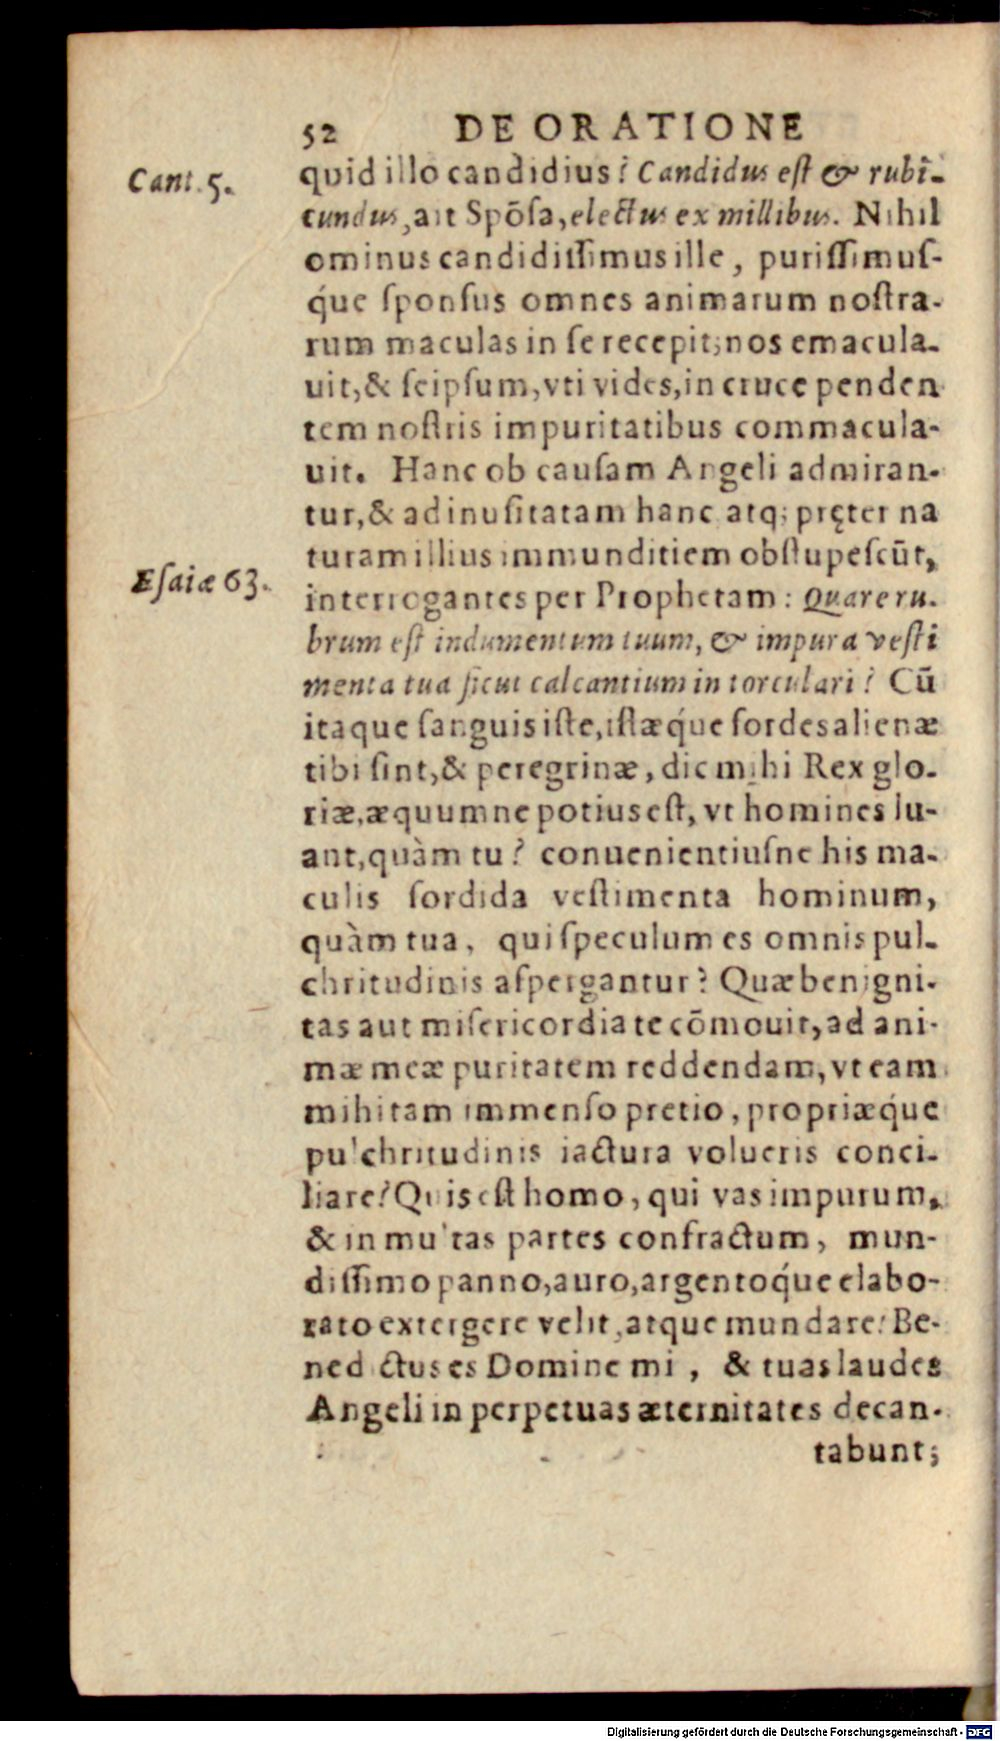 52 DE ORATIONE
Cant. 5.
quid illo candidius? Candidus est & rubi-
cundus, ait Spōsa, electus ex millibus. Nihil
ominus candidissimus ille, purissimus-
q́ue sponsus omnes animarum nostra-
rum maculas in se recepit; nos emacula-
uit, & seipsum, vti vides, in cruce penden
tem nostris impuritatibus commacula-
uit. Hanc ob causam Angeli admiran-
tur, & ad inusitatam hanc atq; pręter na
turam illius immunditiem obstupescūt,
Esaiæ 63.
interrogantes per Prophetam: Quare ru-
brum est indumentum tuum, & impura vesti
menta tua sicut calcantium in torculari? Cū
itaque sanguis iste, istæq́ue sordes alienæ
tibi sint, & peregrinæ, dic mihi Rex glo-
riæ, æquumne potius est, vt homines lu-
ant, quàm tu? conuenientiusne his ma-
culis sordida vestimenta hominum,
quàm tua, qui speculum es omnis pul-
chritudinis aspergantur? Quæ benigni-
tas aut misericordia te cōmouit, ad ani-
mæ meæ puritatem reddendam, vt eam
mihi tam immenso pretio, propriæq́ue
pulchritudinis iactura volueris conci-
liare? Quis est homo, qui vas impurum,
& in multas partes confractum, mun-
dissimo panno, auro, argentoq́ue elabo-
rato extergere velit, atque mundare? Be-
nedictus es Domine mi, & tuas laudes
Angeli in perpetuas æternitates decan-
tabunt;
Digitalisierung gefördert durch die Deutsche Forschungsgemeinschaft - DFG